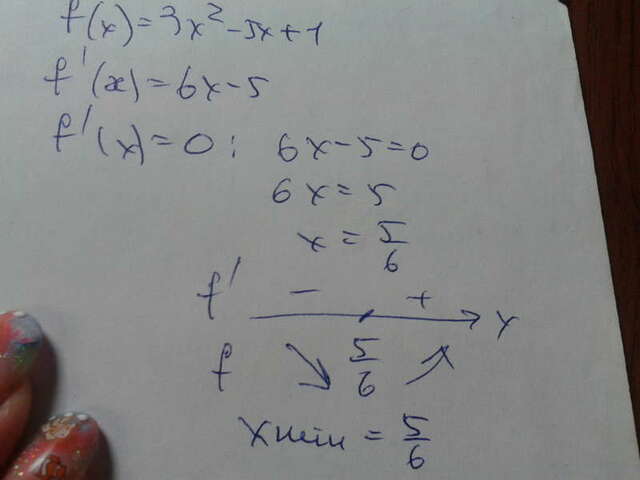 f(x)=3x²-5x+1
f'(x)=6x-5
f'(x)=0: 6x-5=0
6x=5
x=5/6
f' - + x
f ↘ 5/6 ↗
xmin=5/6